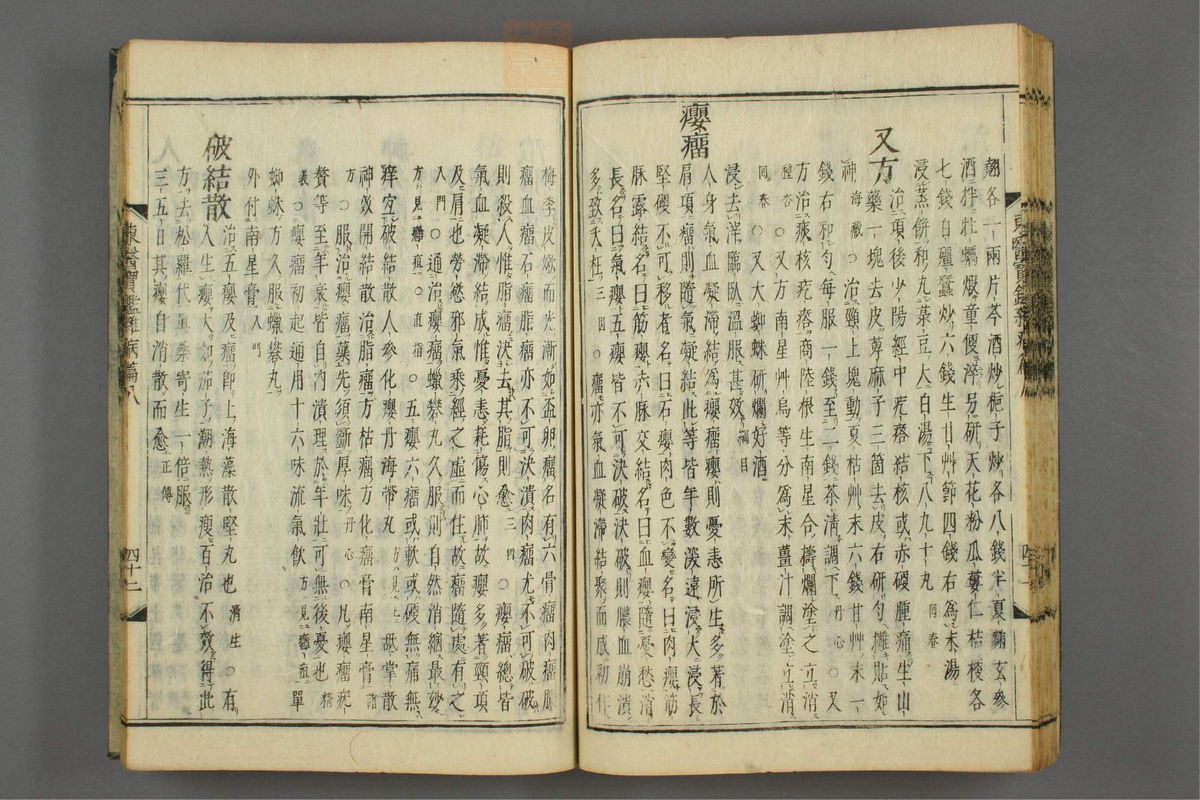 翹各一兩片芩酒炒梔子炒各八錢半夏麴玄參
酒拌牡蠣煆童便淬另研天花粉瓜蔞仁桔梗各
七錢白殭蠶炒六錢生甘艸節四錢右爲末湯
浸蒸餠和丸菉豆大白湯下八九十丸 回春
又方 治項後少陽經中疙瘩結核或赤硬腫痛生山
藥一塊去皮萆麻子三箇去皮右研勻攤貼如
神 海藏 ○治頸上塊動夏枯艸末六錢甘艸末一
錢右和勻每服一錢至二錢茶淸調下 丹心 ○又
方治痰核疙瘩商陸根生南星合擣爛塗之立消
種杏 ○又方南星艸烏等分爲末薑汁調塗立消
回春 ○又大蜘蛛研爛好酒
浸去滓臨臥溫服甚效 綱目
癭瘤 人身氣血凝滯結爲癭瘤癭則憂恚所生多著於
肩項瘤則隨氣凝結此等皆年數深遠浸大浸長
堅硬不可移者名曰石癭肉色不變名曰肉癭筋
脉露結名曰筋癭赤脉交結名曰血癭隨憂愁消
長名曰氣癭五癭皆不可決破決破則膿血崩潰
多致夭枉 三因 ○瘤亦氣血凝滯結聚而成初作
梅李皮嫩而光漸如盃卵瘤名有六骨瘤肉瘤膿
瘤血瘤石瘤脂瘤亦不可決潰肉瘤尤不可破破
則殺人惟脂瘤決去其脂則愈 三因 ○癭瘤總皆
氣血凝滯結成惟憂恚耗傷心肺故癭多著頸項
及肩也勞慾邪氣乘經之虛而住故瘤隨處有之
入門 ○通治癭瘤蠟礬丸久服則自然消縮最妙
方見癰疽 ○直指 ○五癭六瘤或軟或硬無痛無
痒宜破結散人參化癭丹海帶丸 方見上 舐掌散
神效開結散治脂瘤方枯瘤方化瘤膏南星膏 諸
方 ○服治癭瘤藥先須斷厚味 丹心 ○凡癭瘤疣
贅等至年衰皆自內潰理於年壯可無後憂也 精
義 ○癭瘤初起通用十六味流氣飮 方見癰疽 單
蜘蛛方久服蠟礬丸
外付南星膏 入門
破結散 治五癭及瘤卽上海藻散堅丸也 濟生 ○有
人生癭大如茄子潮熱形瘦百治不效得此
方去松蘿代眞桑寄生一倍服
三五日其癭自消散而愈 正傳
東醫寶鑑雜病篇八
四十二